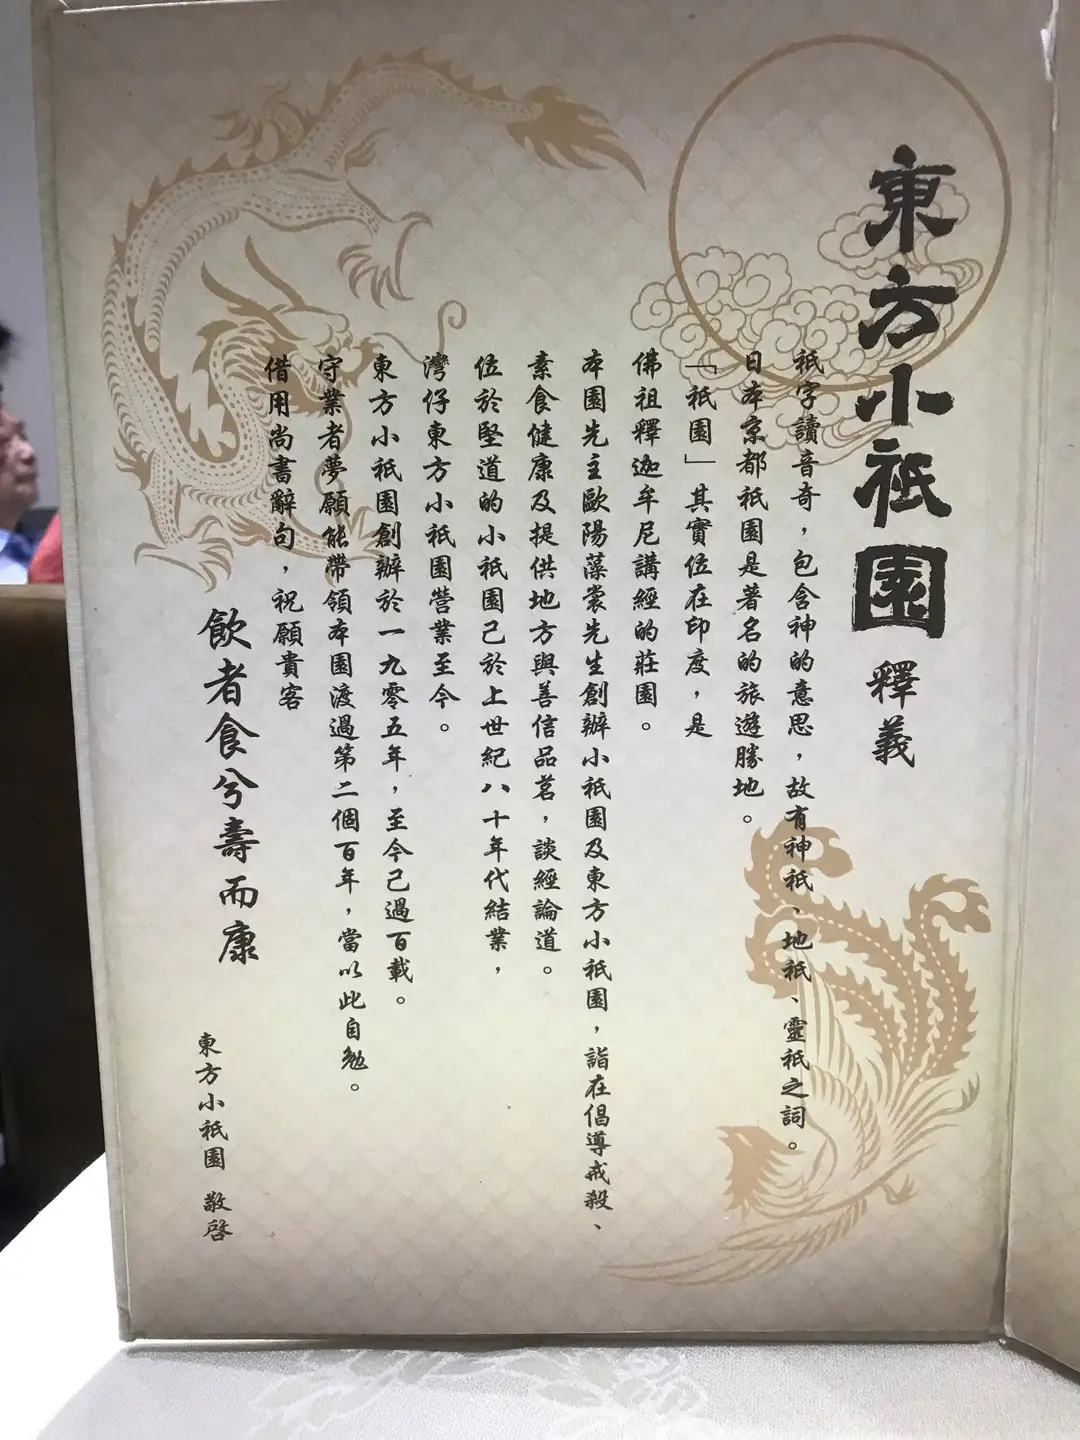 東方小祇園 釋義
祇字讀音奇，包含神的意思，故有神祇、地祇、靈祇之詞。
日本京都祇園是著名的旅遊勝地。
「祇園」其實位在印度，是
佛祖釋迦牟尼講經的莊園。
本園先主歐陽藻裳先生創辦小祇園及東方小祇園，詣在倡導戒殺、
素食健康及提供地方與善信品茗，談經論道。
位於堅道的小祇園己於上世紀八十年代結業，
灣仔東方小祇園營業至今。
東方小祇園創辦於一九零五年，至今己過百載。
守業者夢願能帶領本園渡過第二個百年，當以此自勉。
借用尚書辭句，祝願貴客
飲者食兮壽而康
東方小祇園 敬啓